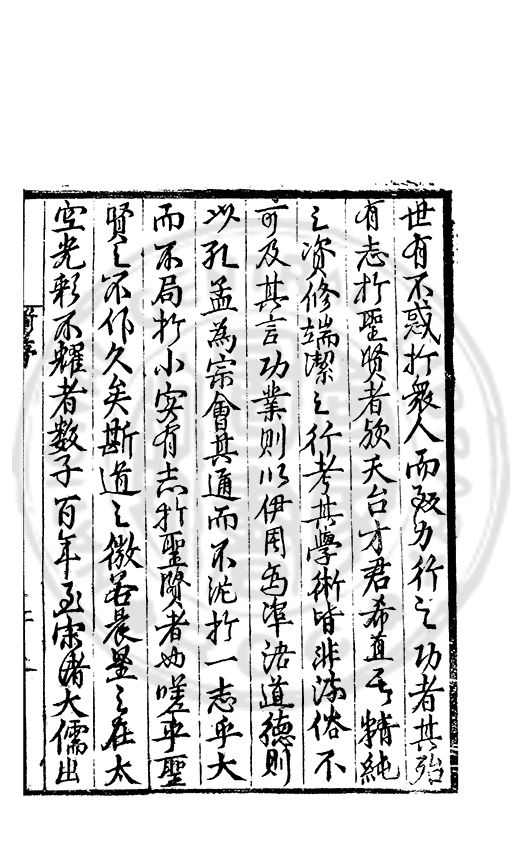 世有不惑於眾人而致力行之功者其殆
有志於聖賢者歟天台方君希直以精純
之資修端潔之行考其學術皆非流俗不
可及其言功業則以伊周為準語道德則
以孔孟為宗會其通而不泥於一志乎大
而不局於小安有志於聖賢者也嗟乎聖
賢之不作久矣斯道之微若晨星之在太
空光彩不耀者數千百年至宋諸大儒出